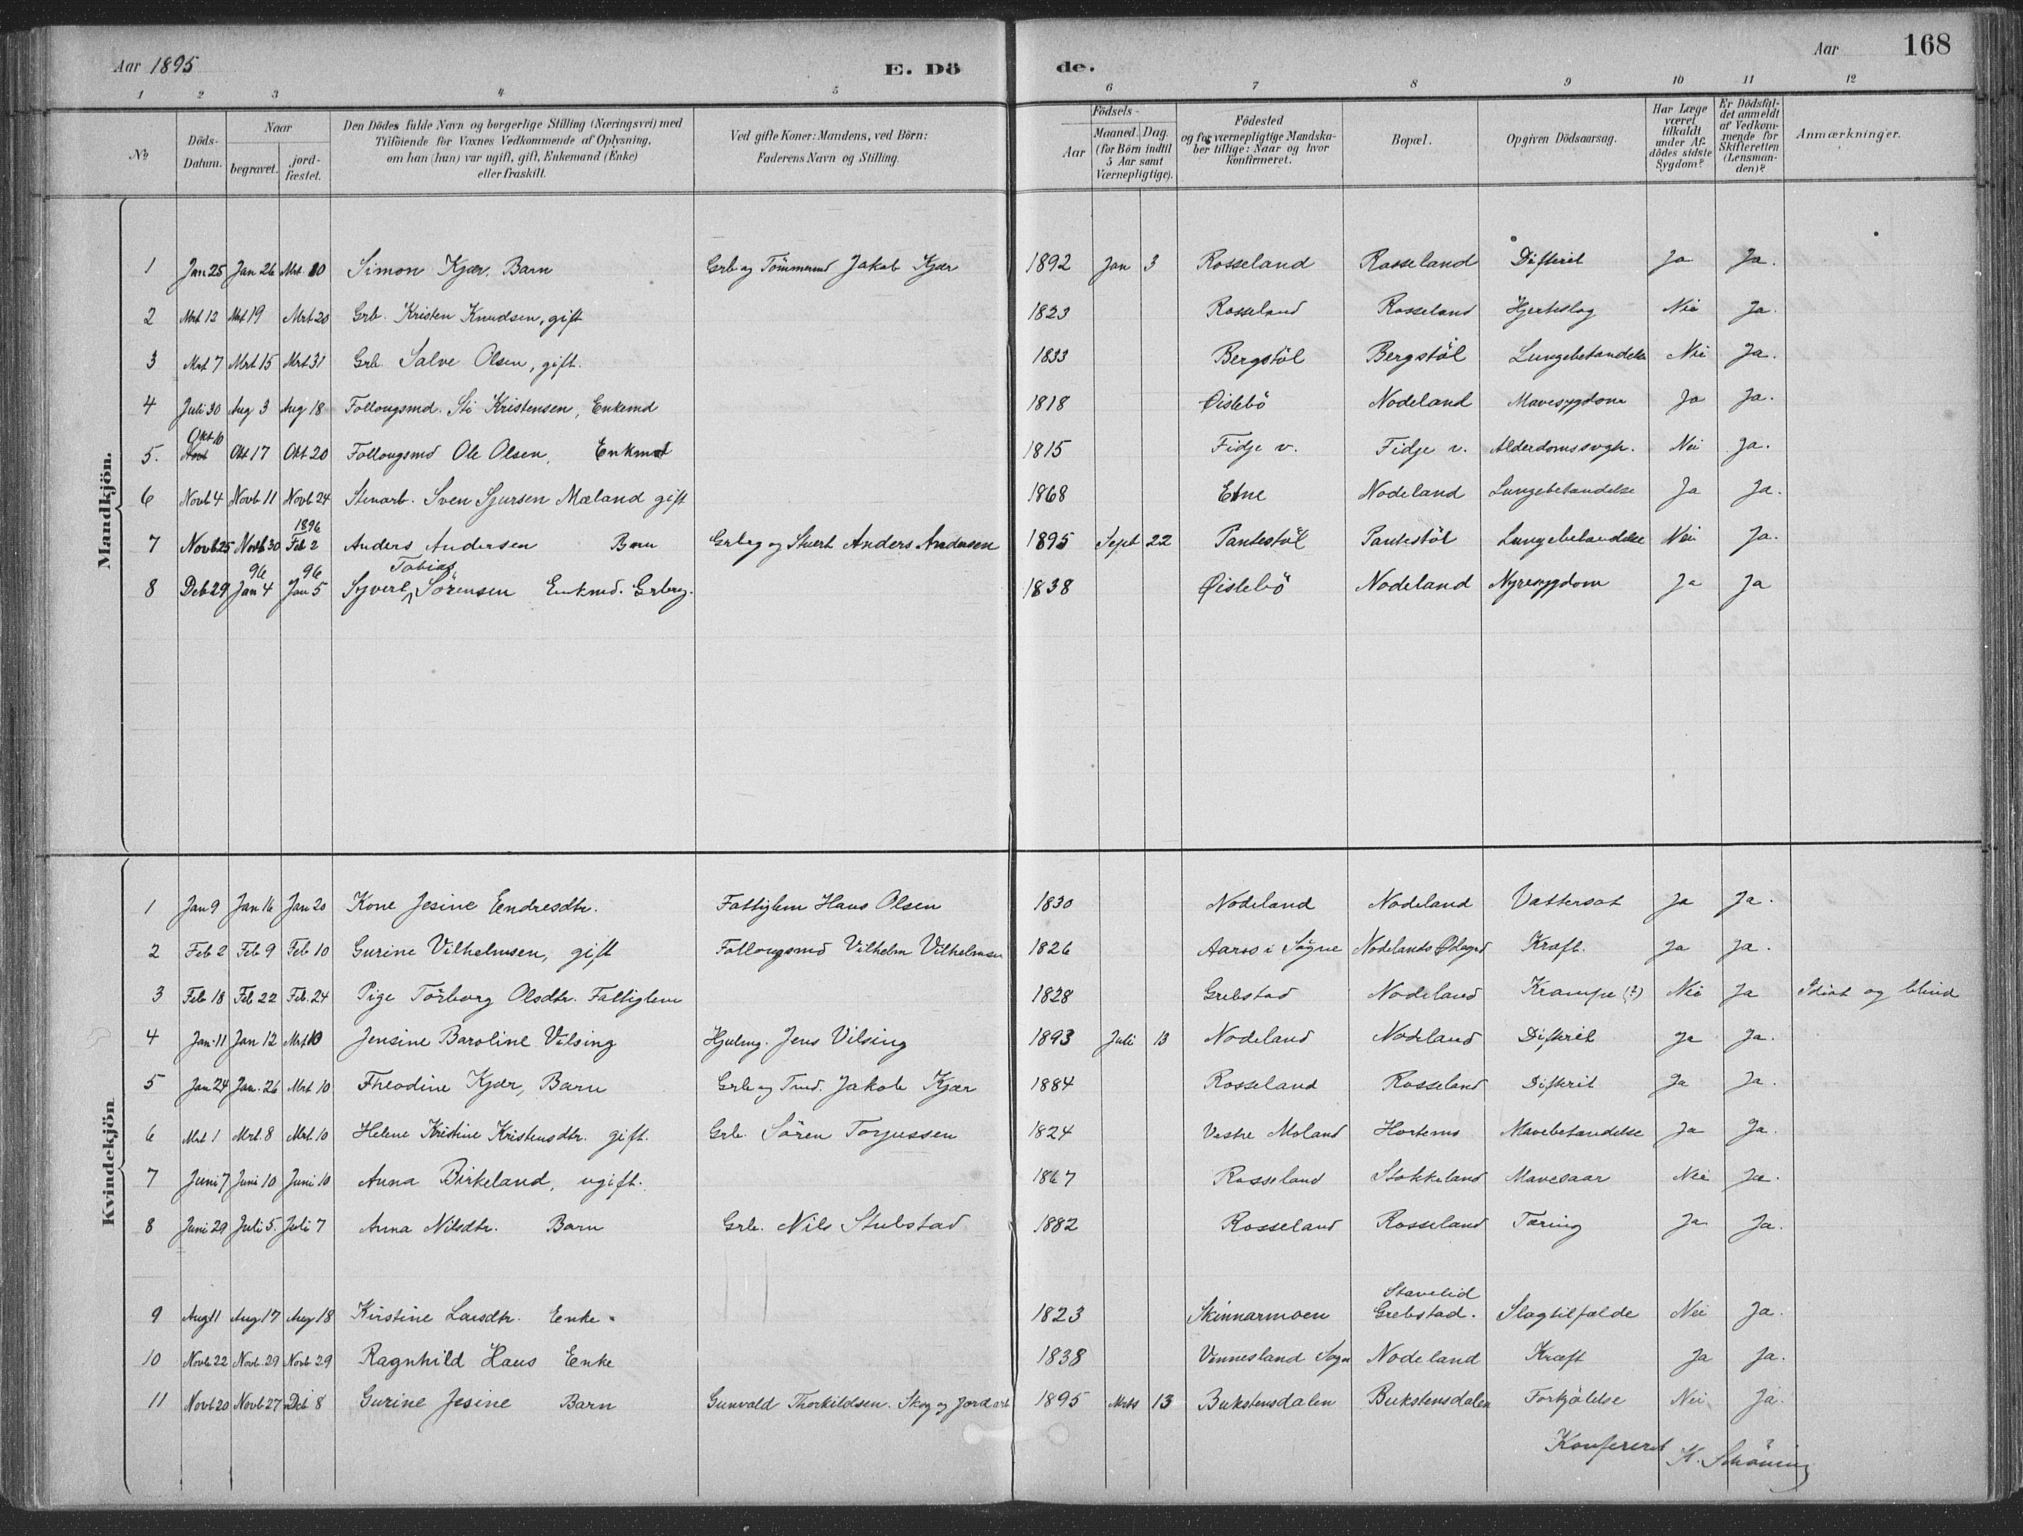 Aar 1895 E. Dö de. Aar 168
1 2 3 4 5 6 7 8 9 10 11 12
No Döds-Datum. Naar begravet. jordfæstet. Den Dödes fulde Navn og borgerlige Stilling (Næringsvei) med Tilföiende for Voxnes Vedkommende af Oplysning, om han (hun) var ugift, gift, Enkemand (Enke) eller fraskilt. Ved gifte Koner: Mandens, ved Börn: Faderens Navn og Stilling. Födsels- Aar Maaned. Dag. (for Börn indtil 5 Aar samt Værnepligtige). Födested og for værnepligtige Mandskaber tillige: Naar og hvor konfirmeret. Bopæl. Opgiven Dödsaarsag. Har Læge været tilkaldt under Afdödes sidste Sygdom? Er Dödsfaldet anmeldt af Vedkommende for Skifteretten (Lensmanden)? Anmærkninger.
Mandkjön.
1 Jan 25 Jan 26 Mrt 10 Simon Kjær, Barn Grb og Tömmermd Jakob Kjær 1892 Jan 3 Rosseland Rosseland Difterit Ja Ja.
2 Mrt 12 Mrt 19 Mrt 20 Grb. Kristen Knudsen, gift 1823 Rosseland Rosseland Hjerteslag Nei Ja.
3 Mrt 7 Mrt 15 Mrt 31 Grb. Salve Olsen, gift. 1833 Bergstöl Bergstöl Lungebetændelse Nei Ja.
4 Juli 30 Aug 3 Aug 18 Follougsmd. Sti Kristensen, Enkemd 1818 Øislebö Nodeland Mavesygdom Ja Ja.
5. Okt 10 Okt 17 Okt 20 Follougsmd Ole Olsen, Enkmd 1815 Fidje v. Fidje v. Alderdomssvagh. Nei Ja.
6 Novb 4 Novb 11 Novb 24 Stenarb. Sven Sjursen Mæland gift 1868 Etne Nodeland Lungebetændelse Ja Ja.
7 Novb 25 Novb 30 1896 Feb 2 Anders Andersen Barn Grbeg og Stuert Anders Andersen 1895 Sept 22 Pantestöl Pantestöl Lungebetændelse Nei Ja.
8 Deb 29 96 Jan 4 96 Jan 5 Syvert Tobias Sörensen Enkmd. Grbeg. 1838 Øislebö Nodeland Nyresygdom Ja Ja
Kvindekjön
1 Jan 9 Jan 16 Jan 20 Kone Jesine Endresdtr. Fattiglem Hans Olsen 1830 Nodeland Nodeland Vattersot Ja Ja.
2 Feb 2 Feb 9 Feb 10 Gurine Vilhelmsen, gift Follougsmd Vilhelm Vilhelmsen 1826 Aaros i Sögne Nodelands Kræft. Ja Ja.
3 Feb 18 Feb 22 Feb. 24 Pige Törborg Olsdtr. Fattiglem 1828 Grebstad Nodeland Krampe (?) Nei Ja Idiot og blind
4 Jan. 11 Jan 12 Mrt 10 Jensine Baroline Vilsing Hjulmg. Jens Vilsing 1893 Juli 13 Nodeland Nodeland Difterit Ja Ja.
5 Jan 24 Jan. 26 Mrt 10 Theodine Kjær, Barn Grb og Tmd. Jakob Kjær 1884 Rosseland Rosseland Difterit Ja Ja.
6 Mrt 1 Mrt. 8 Mrt. 10 Helene Kristine Kristensdtr. gift. Grb. Sören Torjussen 1824 Vestre Moland Hortems Mavebetændelse Ja Ja.
7 Juni 7 Juni 10 Juni 10 Anna Birkeland, ugift. 1867 Rosseland Stokkeland Mavesaar Nei Ja.
8 Juni 29 Juli 5. Juli 7 Anna Nilsdtr. Barn Grb. Nils Stubstad 1882 Rosseland Rosseland Tæring Ja Ja.
9 Aug 11 Aug 17 Aug 18 Kirstine Larsdtr. Enke. 1823 Skinnarmoen Stavelid Grebstad. Slagtilfælde Nei Ja.
10 Novb 22 Novb. 29 Novb 29 Ragnhild Haus Enke 1838 Vennesland Sogn Nodeland Kræft Ja Ja.
11 Novb 20 Novb 27 Deb 8 Gurine Jesine Barn Gunvald Thorkildsen. Skog og Jordarb 1895 Mrts 13 Bukstensdalen Bukstensdalen Forkjölelse Nei Ja.
Konfereret K. Schöning